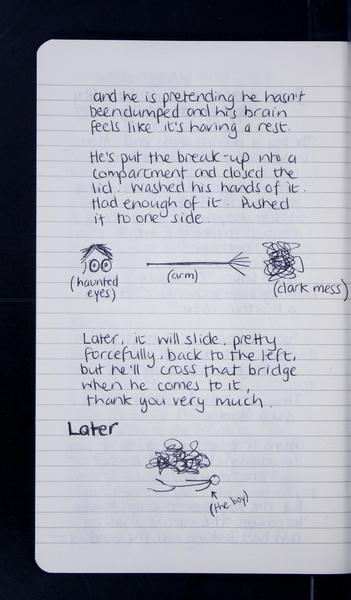 and he is pretending he hasn't
been dumped and his brain
feels like it's having a rest.
He's put the break-up into a
compartment and closed the
lid. Washed his hands of it.
Had enough of it. Pushed
it to one side.
(haunted eyes)
(arm)
(dark mess)
Later, it will slide, pretty
forcefully, back to the left,
but he'll cross that bridge
when he comes to it,
thank you very much.
Later
(the boy)